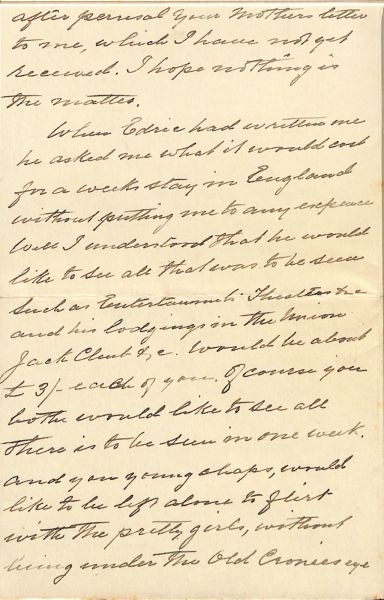 after perusal your Mothers letter
to me, which I have not yet
received. I hope nothing is
the matter.
When Edric had written me
he asked me what it would cost
for a weeks stay in England
without putting me to any expence
Well I understood that he would
like to see all that was to be seen
such as Entertainments Theatres &c
and his lodgings in the Union
Jack Club &c. would be about
£ 3/- each of you. Of course you
bothe would like to see all
there is to be seen in one week.
and you young chaps, would
like to be left alone to flirt
with the pretty girls, without
being under the Old Cronies eye